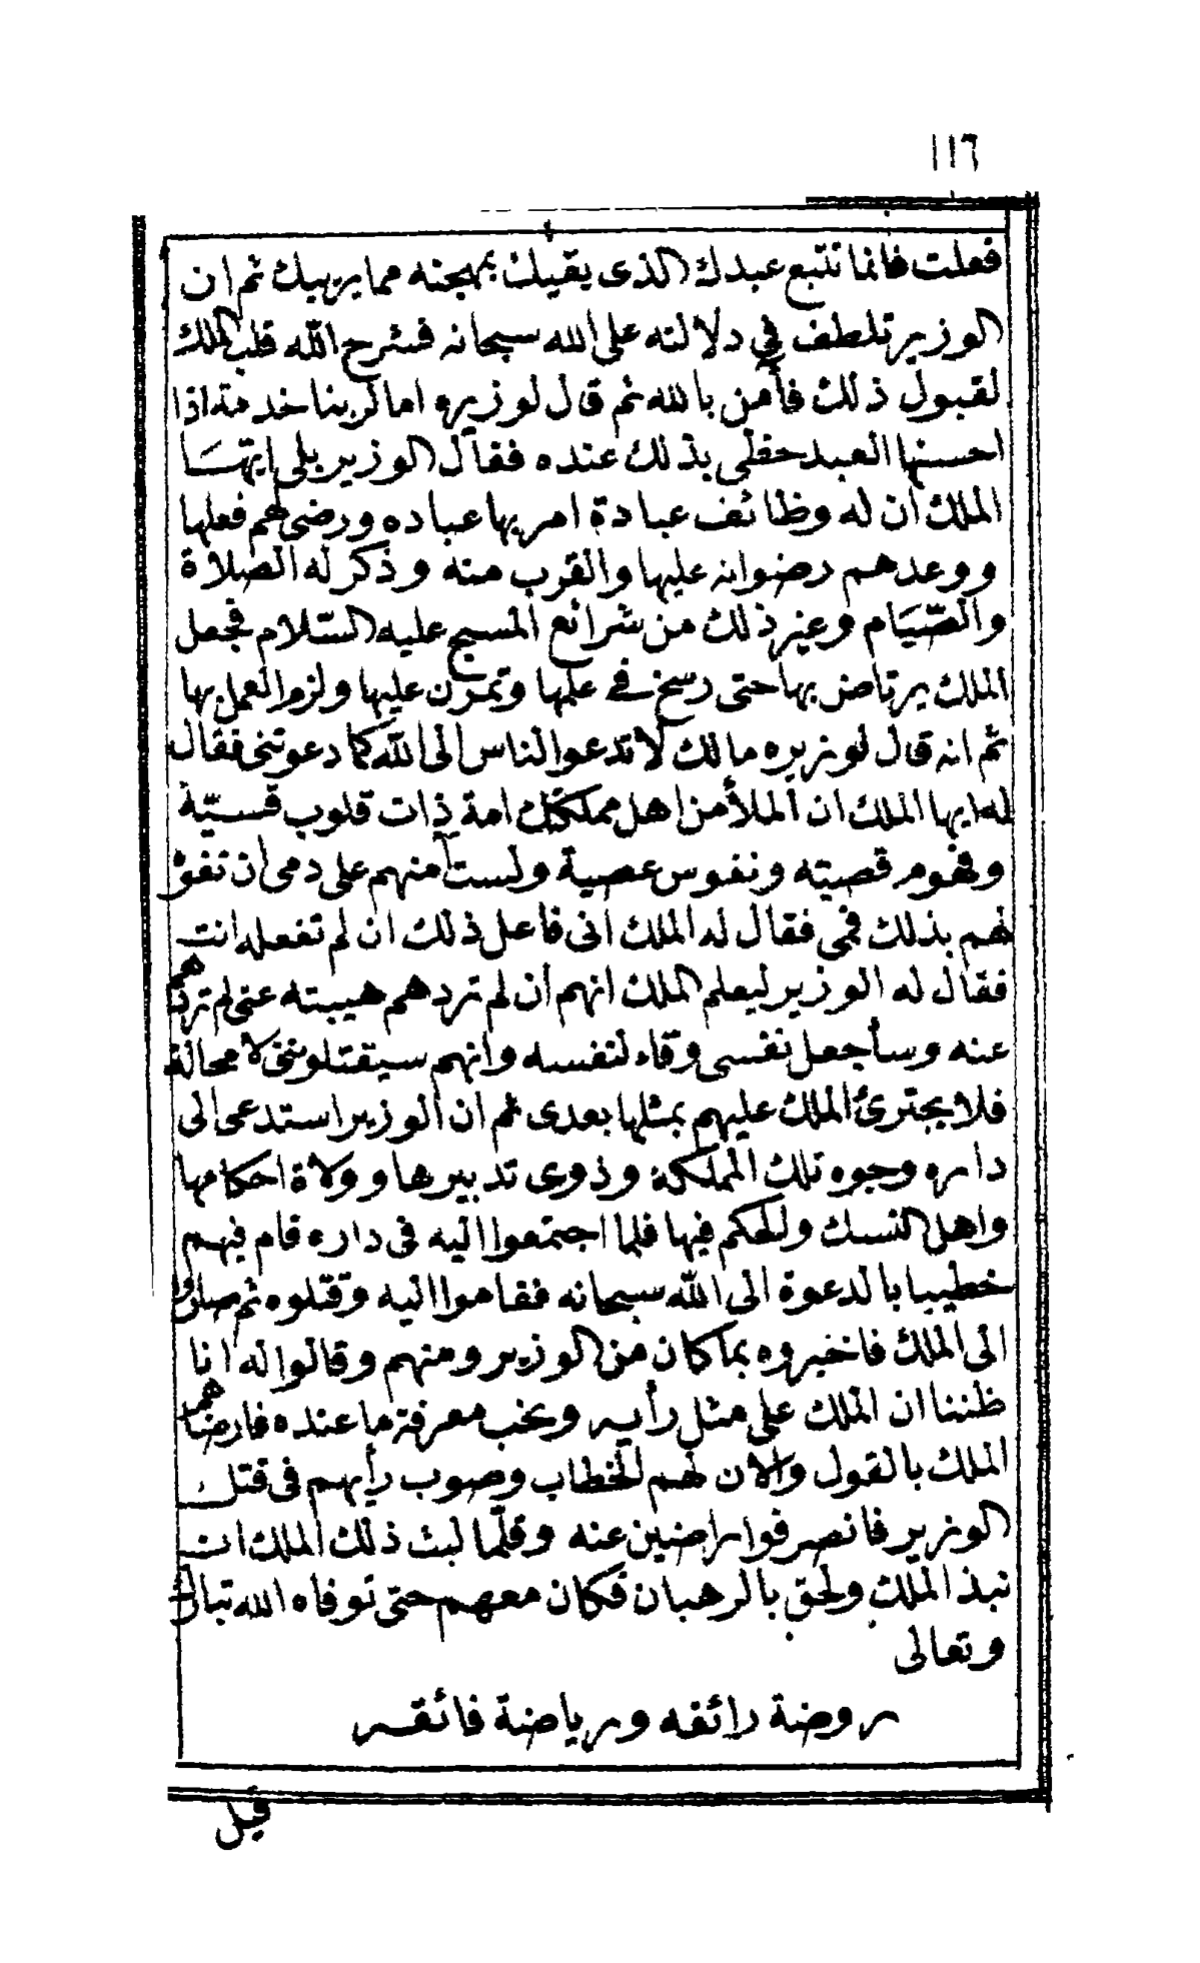 ١١٦
فعلت فانما تتبع عبدك الذى يقيك بمهجته مما يريبك ثم ان
الوزير تلطف في دلالته على الله سبحانه فشرح الله قلب الملك
لقبول ذلك فأمن بالله ثم قال لوزيره اما لربنا خدمة اذا
احسنها العبد حظى بذلك عنده فقال الوزير بلى ايتها
الملك ان له وظائف عبادة امر بها عباده ورضى لهم فعلها
ووعدهم رضوانه عليها والقرب منه وذكر له الصلاة
والصّيَام وغير ذلك من شرائع المسيح عليه السّلام فجعل
الملك يرتاض بها حتى رسخ في علمها وتمرّن عليها ولزم العمل بها
ثم انه قال لوزيره مالك لا تدعو الناس الى الله كما دعوتنى فقال
له ايها الملك ان الملأ من اهل مملكتك امة ذات قلوب قسيّة
وفهوم قصيته ونفوس عصية ولست آمنهم على دمى ان تفوّ
لهم بذلك فمى فقال له الملك انى فاعل ذلك ان لم تفعله انت
فقال له الوزير ليعلم الملك انهم ان لم تردهم هيبته عنى لم تردّهم
عنه وسأجعل نفسى وقاء لنفسه وانهم سيقتلوننى لا محالة
فلا يجترئ الملك عليهم بمثلها بعدى ثم ان الوزير استدعى الى
داره وجوه تلك المملكة وذوى تدبيرها وولاة احكامها
واهل النسك والحكم فيها فلما اجتمعوا اليه فى داره قام فيهم
خطيبا بالدعوة الى الله سبحانه فقاموا اليه وقتلوه ثم صاروا
الى الملك فاخبروه بما كان من الوزير ومنهم وقالوا له انا
ظننا ان الملك على مثل رأيه ونحب معرفة ما عنده فارضاهم
الملك بالقول والان لهم الخطاب وصوب رأيهم فى قتل
الوزير فانصرفوا راضين عنه وقلّما لبث ذلك الملك ان
نبذ الملك ولحق بالرهبان فكان معهم حتى توفاه الله تبارك
وتعالى
روضة رائقه ورياضة فائقه
قيل